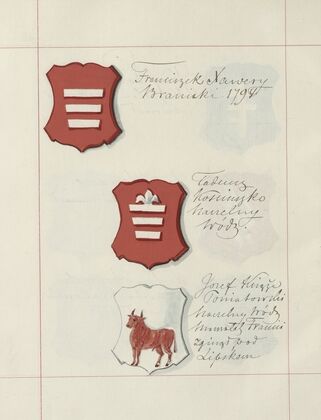 Franciszek Xawery
Branicki 1794
Tadeusz
Kościuszko
Naczelny
Wódz.
Józef Książe
Poniatowski
Naczelny Wódz
zginął pod
Lipskiem